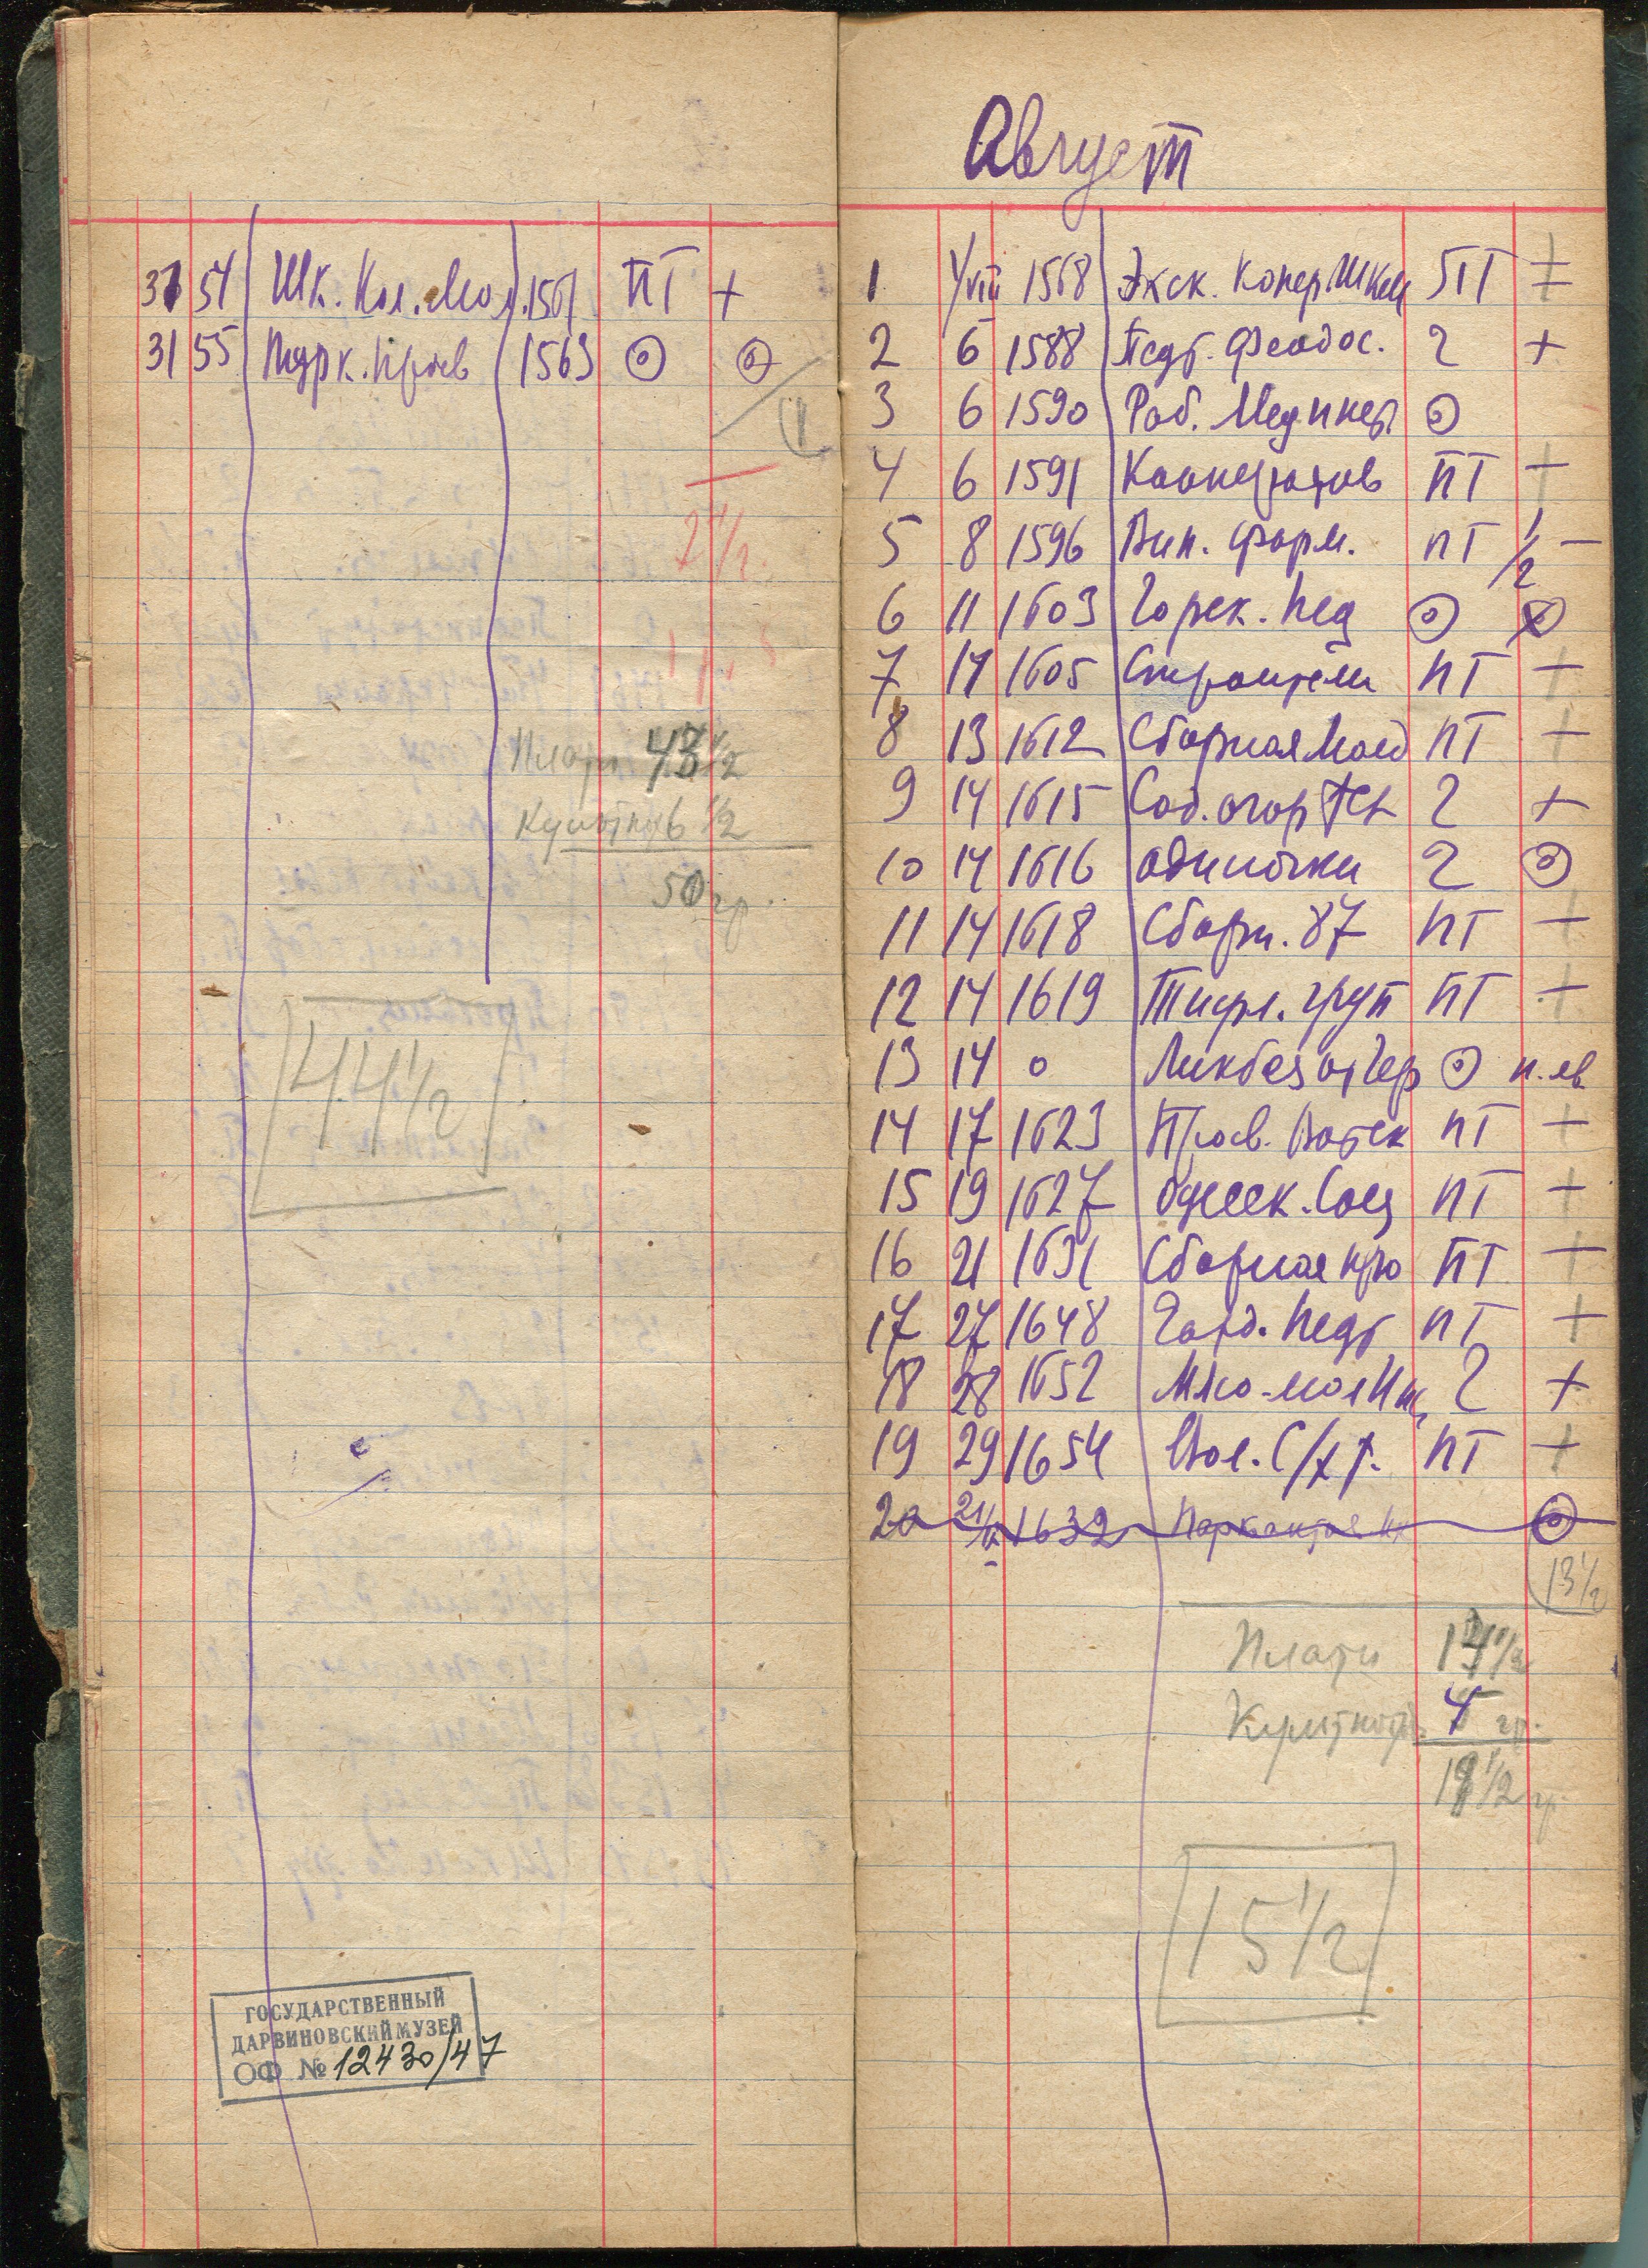 31 54 Шк. Кол. Мол. 1561 ПТ +
31 55 1563 ⊙ ⊙
1
2 1/2
Плат 43 1/2
Культпох 6 1/2
50 гр.
44 1/2
ГОСУДАРСТВЕННЫЙ
ДАРВИНОВСКИЙ МУЗЕЙ
ОФ № 12430/47
Август
1 1/VIII 1568 Экск. Копер. Шкел ПТ +
2 6 1588 Педт. Феодос. 2 +
3 6 1590 Раб. Мед ⊙
4 6 1591 Кооператив ПТ +
5 8 1596 Вин. Фарм. ПТ 1/2 –
6 11 1603 Горск. Пед ⊙ ⊙
7 11 1605 Строители ПТ +
8 13 1612 Сборная ПТ +
9 14 1615 Сад. огор 2 +
10 14 1616 одиночки 2 ⊙
11 14 1618 Сборн. 87 ПТ +
12 14 1619 Тифл. груп ПТ +
13 14 0 Ликбез ⊙ н. яв
14 17 1623 Просв. Вотск ПТ +
15 19 1627 Одесск. Соц ПТ +
16 21 1631 Сборная про ПТ +
17 27 1648 Педт ПТ +
18 28 1652 Мясо-мол Инж 2 +
19 29 1654 С/х т. ПТ +
20 21/IX 1632 ⊙
13 1/2
Плати 13 1/2
Культпоход 4 гр.
1/2 гр.
15 1/2